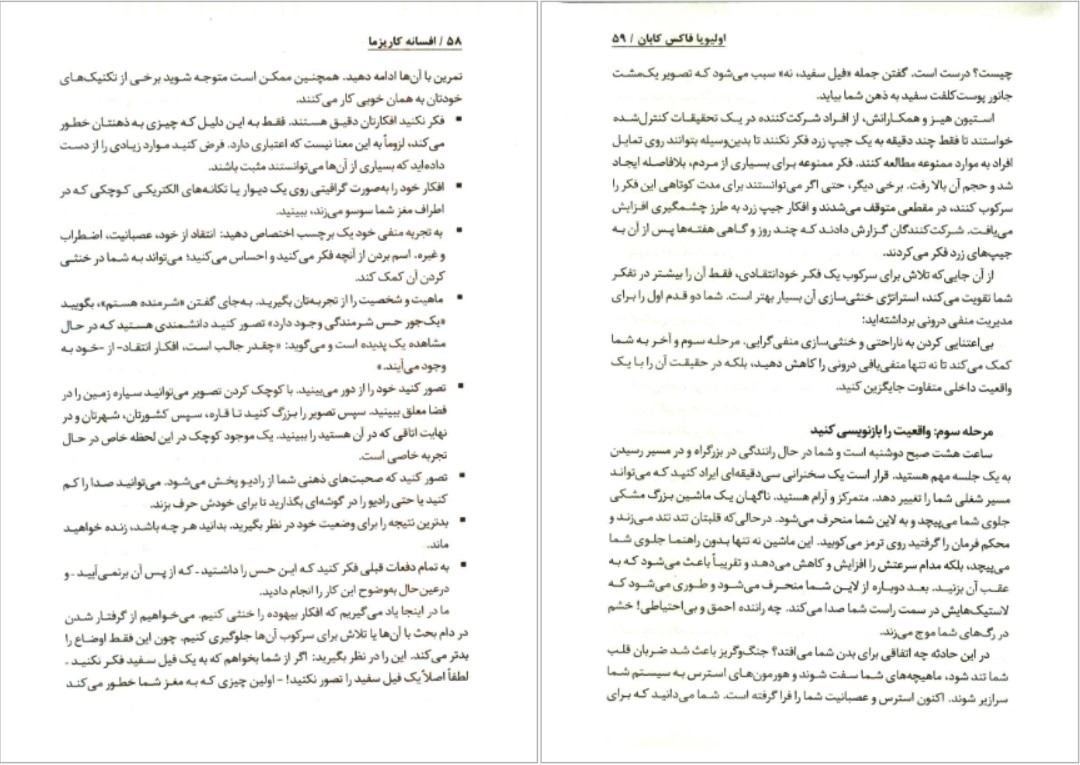 ۵۸ / افسانه کاریزما
تمرین با آن‌ها ادامه دهید. همچنین ممکن است متوجه شوید برخی از تکنیک‌های
خودتان به همان خوبی کار می‌کنند.
▪ فکر نکنید افکارتان دقیق هستند. فقط به این دلیل که چیزی به ذهنتان خطور
می‌کند، لزوماً به این معنا نیست که اعتباری دارد. فرض کنید موارد زیادی را از دست
داده‌اید که بسیاری از آن‌ها می‌توانستند مثبت باشند.
▪ افکار خود را به‌صورت گرافیتی روی یک دیوار یا تکانه‌های الکتریکی کوچکی که در
اطراف مغز شما سوسو می‌زند، ببینید.
▪ به تجربه منفی خود یک برچسب اختصاص دهید: انتقاد از خود، عصبانیت، اضطراب
و غیره. اسم بردن از آنچه فکر می‌کنید و احساس می‌کنید؛ می‌تواند به شما در خنثی
کردن آن کمک کند.
▪ ماهیت و شخصیت را از تجربه‌تان بگیرید. به‌جای گفتن «شرمنده هستم»، بگویید
«یک‌جور حس شرمندگی وجود دارد» تصور کنید دانشمندی هستید که در حال
مشاهده یک پدیده است و می‌گوید: «چقدر جالب است، افکار انتقاد- از -خود به
وجود می‌آیند.»
▪ تصور کنید خود را از دور می‌بینید. با کوچک کردن تصویر می‌توانید سیاره زمین را در
فضا معلق ببینید. سپس تصویر را بزرگ کنید تا قاره، سپس کشورتان، شهرتان و در
نهایت اتاقی که در آن هستید را ببینید. یک موجود کوچک در این لحظه خاص در حال
تجربه خاصی است.
▪ تصور کنید که صحبت‌های ذهنی شما از رادیو پخش می‌شود. می‌توانید صدا را کم
کنید یا حتی رادیو را در گوشه‌ای بگذارید تا برای خودش حرف بزند.
▪ بدترین نتیجه را برای وضعیت خود در نظر بگیرید. بدانید هر چه باشد، زنده خواهید
ماند.
▪ به تمام دفعات قبلی فکر کنید که این حس را داشتید - که از پس آن برنمی‌آیید - و
درعین‌حال به‌وضوح این کار را انجام دادید.
ما در اینجا یاد می‌گیریم که افکار بیهوده را خنثی کنیم. می‌خواهیم از گرفتار شدن
در دام بحث با آن‌ها یا تلاش برای سرکوب آن‌ها جلوگیری کنیم. چون این فقط اوضاع را
بدتر می‌کند. این را در نظر بگیرید: اگر از شما بخواهم که به یک فیل سفید فکر نکنید -
لطفاً اصلاً یک فیل سفید را تصور نکنید! - اولین چیزی که به مغز شما خطور می‌کند
اولیویا فاکس کابان / ۵۹
چیست؟ درست است. گفتن جمله «فیل سفید، نه» سبب می‌شود که تصویر یک‌مشت
جانور پوست‌کلفت سفید به ذهن شما بیاید.
استیون هیز و همکارانش، از افراد شرکت‌کننده در یک تحقیقات کنترل‌شده
خواستند تا فقط چند دقیقه به یک جیپ زرد فکر نکنند تا بدین‌وسیله بتوانند روی تمایل
افراد به موارد ممنوعه مطالعه کنند. فکر ممنوعه برای بسیاری از مردم، بلافاصله ایجاد
شد و حجم آن بالا رفت. برخی دیگر، حتی اگر می‌توانستند برای مدت کوتاهی این فکر را
سرکوب کنند، در مقطعی متوقف می‌شدند و افکار جیپ زرد به طرز چشمگیری افزایش
می‌یافت. شرکت‌کنندگان گزارش دادند که چند روز و گاهی هفته‌ها پس از آن به
جیپ‌های زرد فکر می‌کردند.
از آن جایی‌که تلاش برای سرکوب یک فکر خودانتقادی، فقط آن را بیشتر در تفکر
شما تقویت می‌کند، استراتژی خنثی‌سازی آن بسیار بهتر است. شما دو قدم اول را برای
مدیریت منفی درونی برداشته‌اید:
بی‌اعتنایی کردن به ناراحتی و خنثی‌سازی منفی‌گرایی. مرحله سوم و آخر به شما
کمک می‌کند تا نه تنها منفی‌بافی درونی را کاهش دهید، بلکه در حقیقت آن را با یک
واقعیت داخلی متفاوت جایگزین کنید.
مرحله سوم: واقعیت را بازنویسی کنید
ساعت هشت صبح دوشنبه است و شما در حال رانندگی در بزرگراه و در مسیر رسیدن
به یک جلسه مهم هستید. قرار است یک سخنرانی سی‌دقیقه‌ای ایراد کنید که می‌تواند
مسیر شغلی شما را تغییر دهد. متمرکز و آرام هستید. ناگهان یک ماشین بزرگ مشکی
جلوی شما می‌پیچد و به لاین شما منحرف می‌شود. درحالی‌که قلبتان تند تند می‌زند و
محکم فرمان را گرفتید روی ترمز می‌کوبید. این ماشین نه تنها بدون راهنما جلوی شما
می‌پیچد، بلکه مدام سرعتش را افزایش و کاهش می‌دهد و تقریباً باعث می‌شود که به
عقب آن بزنید. بعد دوباره از لاین شما منحرف می‌شود و طوری می‌شود که
لاستیک‌هایش در سمت راست شما صدا می‌کند. چه راننده احمق و بی‌احتیاطی! خشم
در رگ‌های شما موج می‌زند.
در این حادثه چه اتفاقی برای بدن شما می‌افتد؟ جنگ‌وگریز باعث شد ضربان قلب
شما تند شود، ماهیچه‌های شما سفت شوند و هورمون‌های استرس به سیستم شما
سرازیر شوند. اکنون استرس و عصبانیت شما را فرا گرفته است. شما می‌دانید که برای